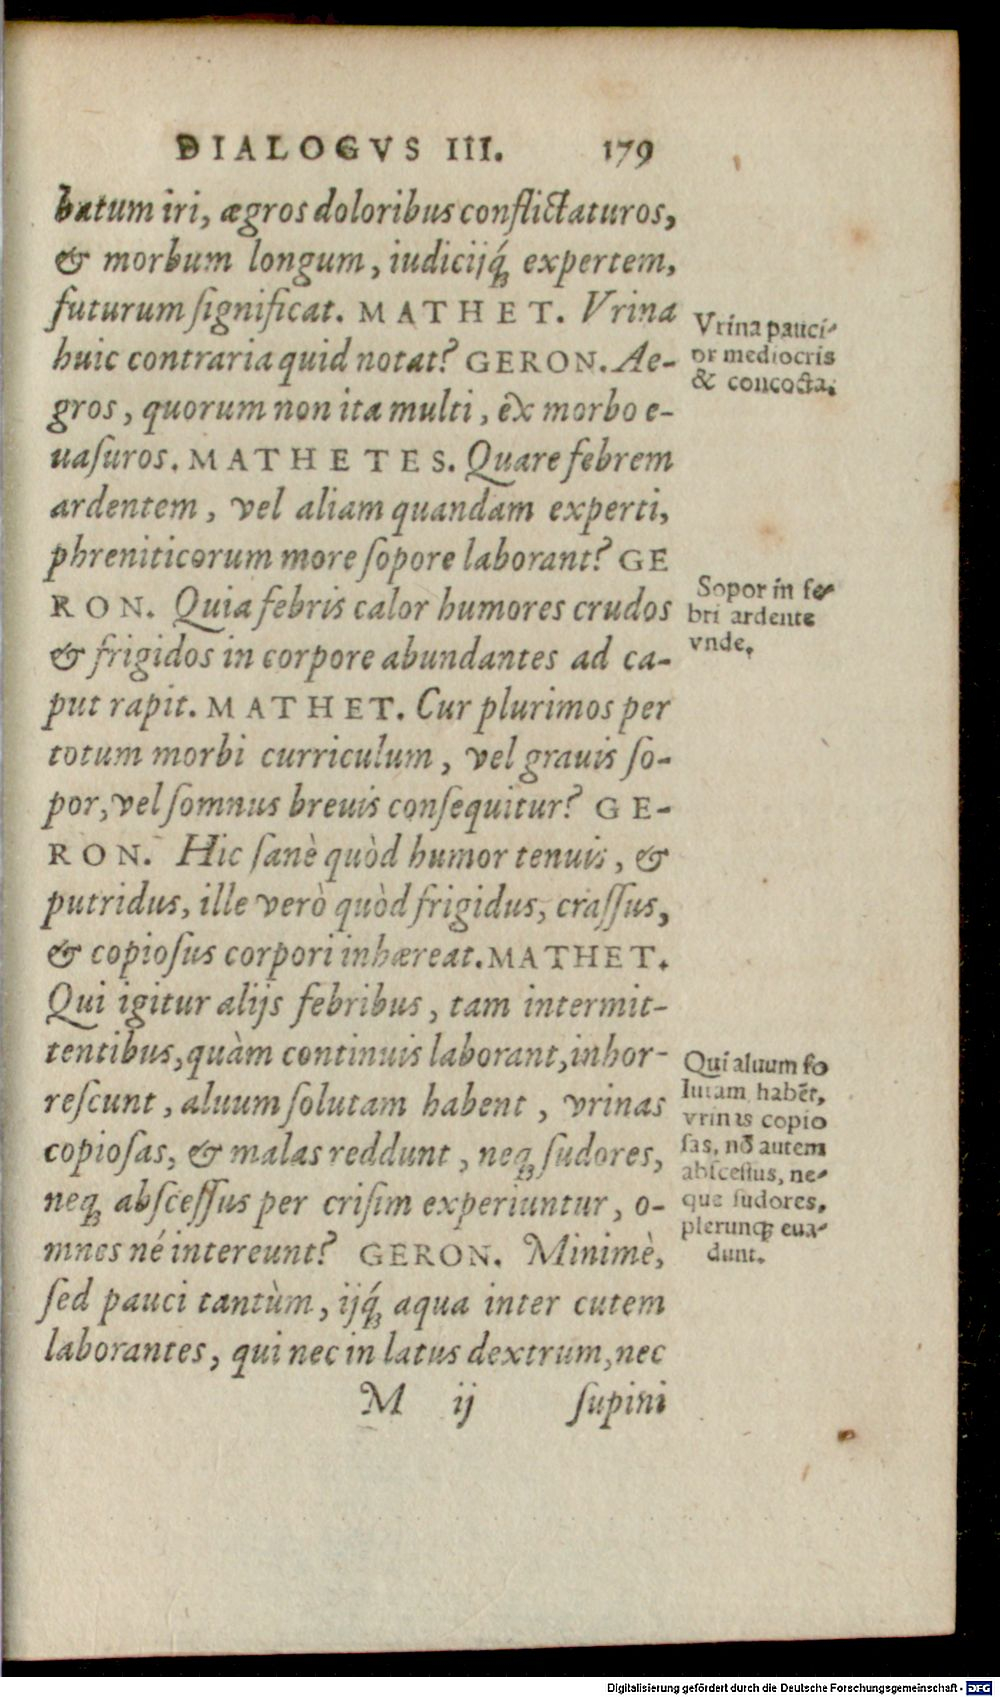 DIALOGVS III. 179
batum iri, ægros doloribus conflictaturos,
& morbum longum, iudicijq́; expertem,
futurum ſignificat. MATHET. Vrina
huic contraria quid notat? GERON. Ae-
gros, quorum non ita multi, ex morbo e-
uaſuros. MATHETES. Quare febrem
ardentem, vel aliam quandam experti,
phreniticorum more ſopore laborant? GE
RON. Quia febris calor humores crudos
& frigidos in corpore abundantes ad ca-
put rapit. MATHET. Cur plurimos per
totum morbi curriculum, vel grauis ſo-
por, vel ſomnus breuis conſequitur? GE-
RON. Hic ſanè quòd humor tenuis, &
putridus, ille verò quòd frigidus, craſſus,
& copioſus corpori inhæreat. MATHET.
Qui igitur alijs febribus, tam intermit-
tentibus, quàm continuis laborant, inhor-
reſcunt, aluum ſolutam habent, vrinas
copioſas, & malas reddunt, neq; ſudores,
neq; abſceſſus per criſim experiuntur, o-
mnes né intereunt? GERON. Minimè,
ſed pauci tantùm, ijq́; aqua inter cutem
laborantes, qui nec in latus dextrum, nec
M ij ſupini
Vrina pauci-
or mediocris
& concocta.
Sopor in fe-
bri ardente
vnde.
Qui aluum ſo
lutam habẽt,
vrinas copio
ſas, nõ autem
abſceſſus, ne-
que ſudores,
plerunq; eua-
dunt.
Digitalisierung gefördert durch die Deutsche Forschungsgemeinschaft - DFG